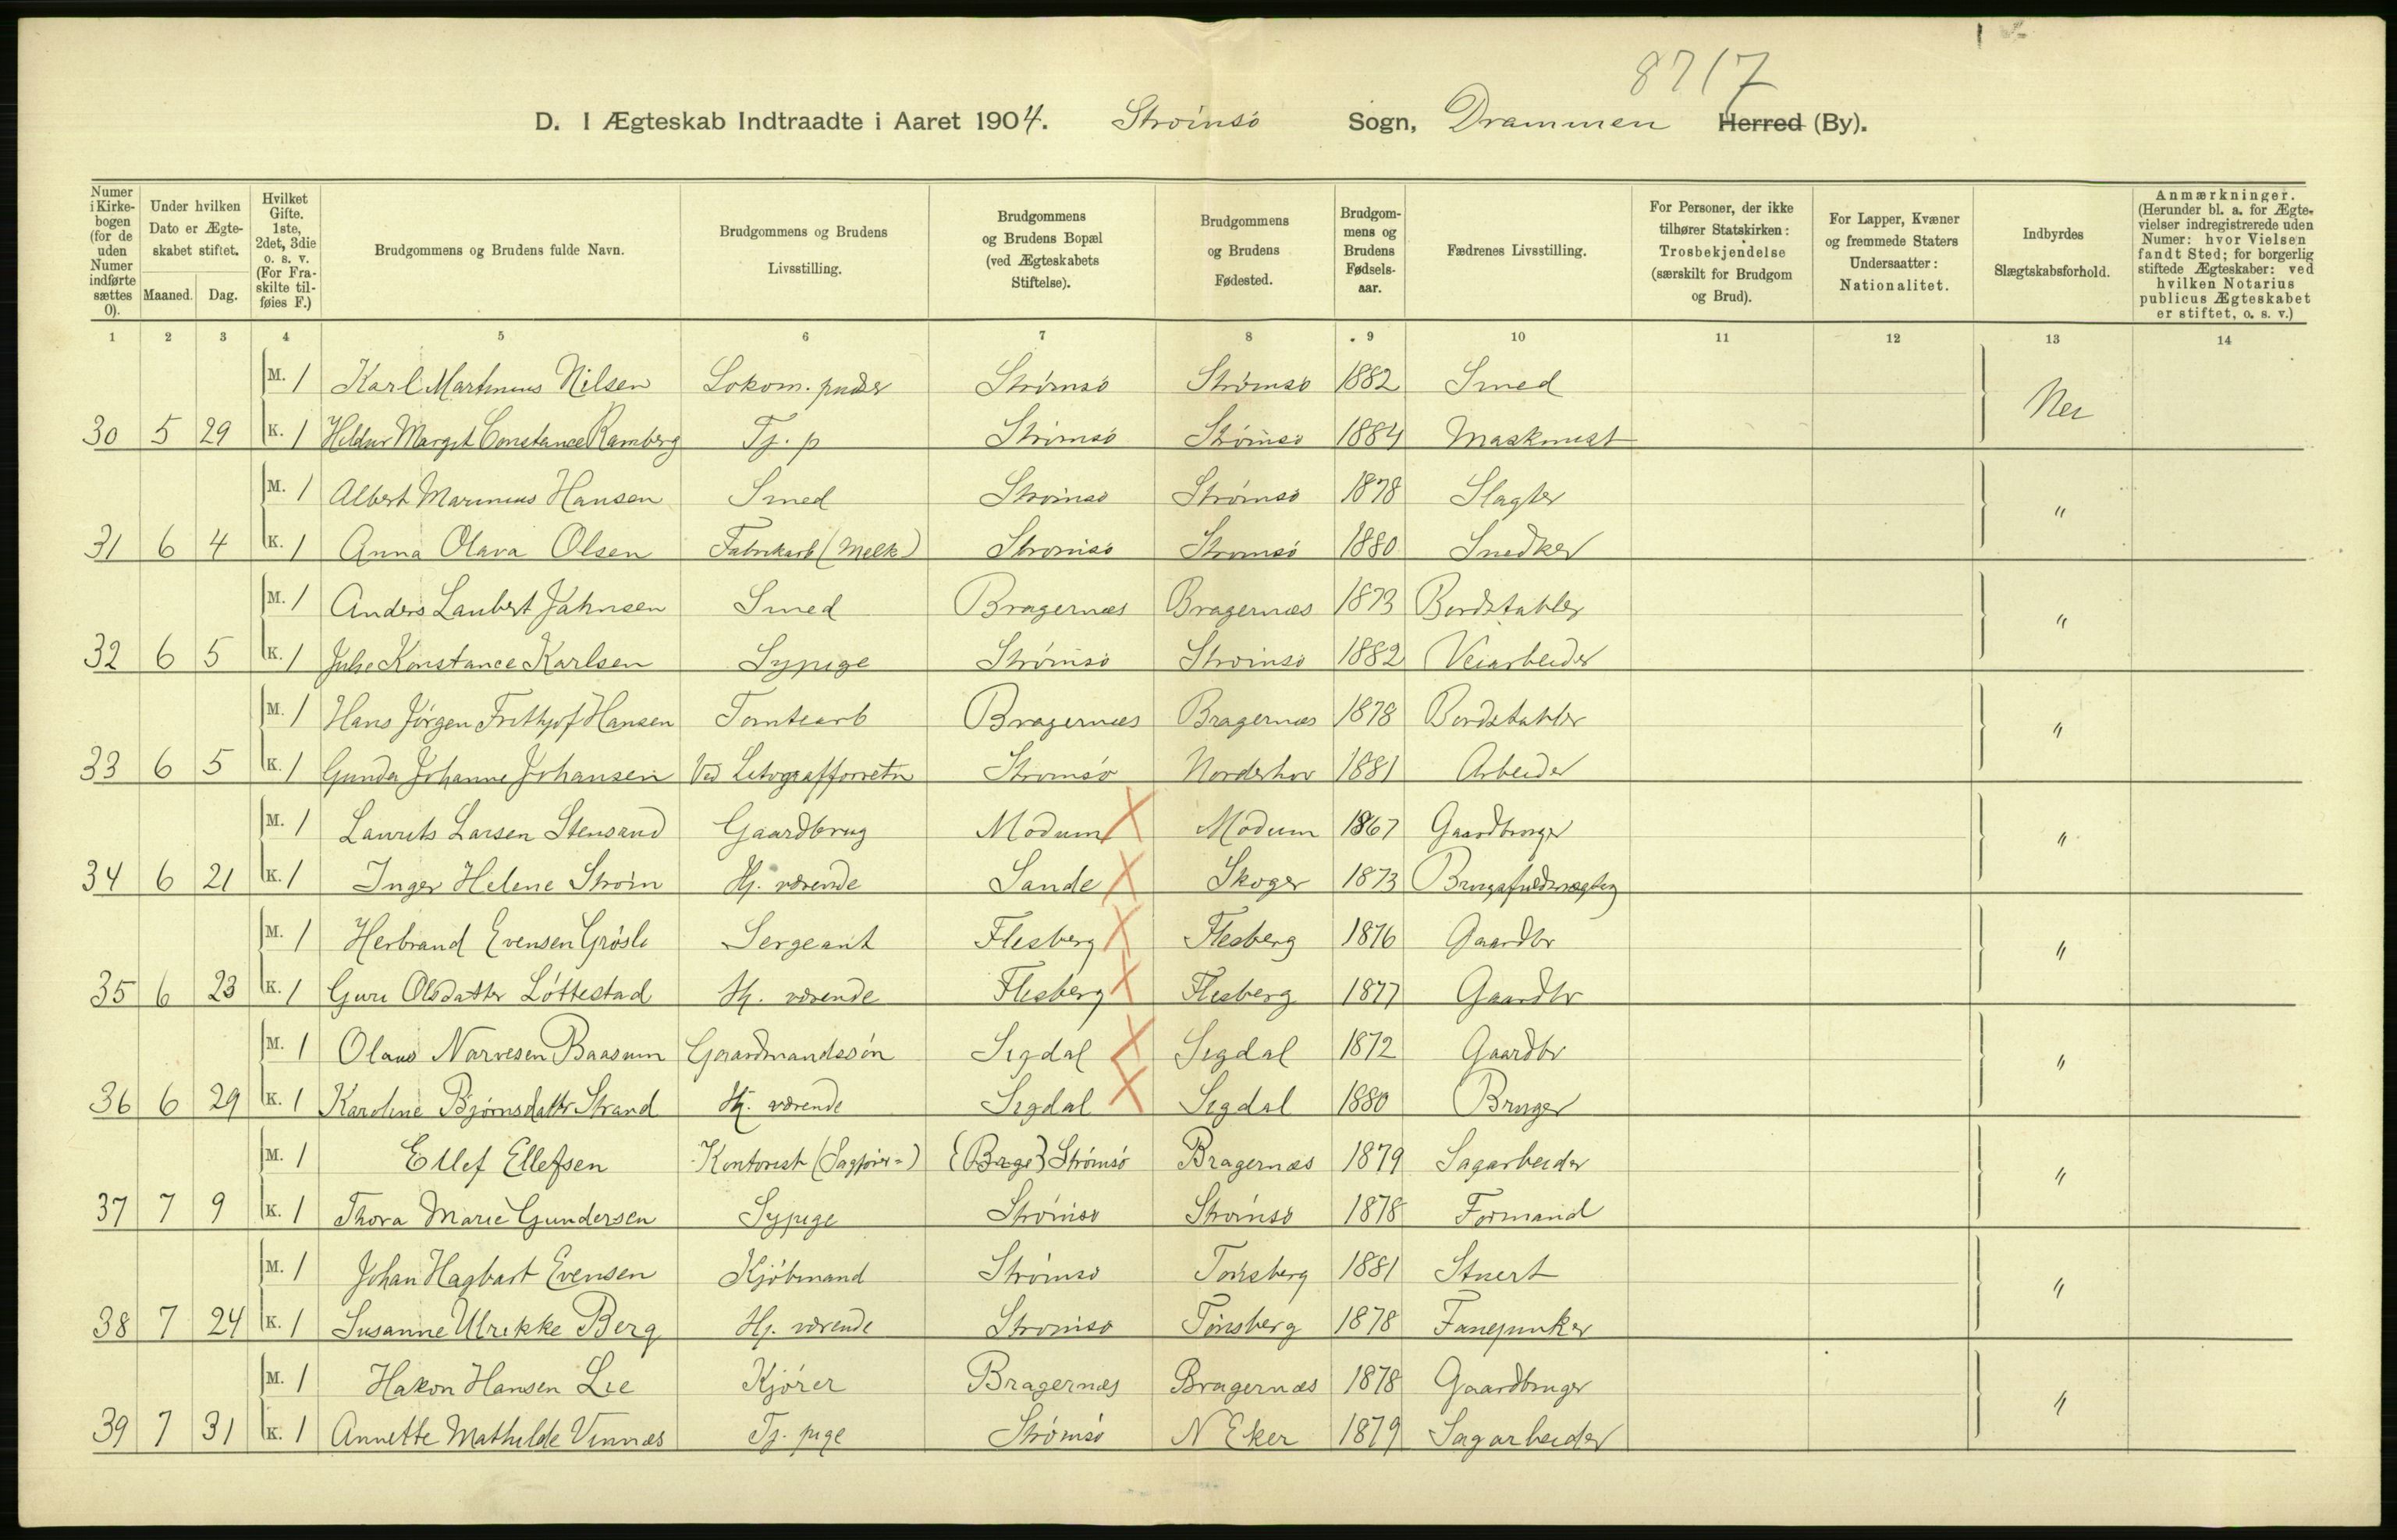 8717
D. I Ægteskab Indtraadte i Aaret 1904. Strömsö Sogn, Drammen Herred (By).
Numer i Kirkebogen (for de uden Numer indførte sættes 0).
Under hvilken Dato er Ægteskabet stiftet.
Maaned. Dag.
Hvilket Gifte. 1ste, 2det, 3die o. s. v. (For Fraskilte tilføies F.)
Brudgommens og Brudens fulde Navn.
Brudgommens og Brudens Livsstilling.
Brudgommens og Brudens Bopæl (ved Ægteskabets Stiftelse).
Brudgommens og Brudens Fødested.
Brudgommens og Brudens Fødselsaar.
Fædrenes Livsstilling.
For Personer, der ikke tilhører Statskirken: Trosbekjendelse (særskilt for Brudgom og Brud).
For Lapper, Kvæner og fremmede Staters Undersaatter: Nationalitet.
Indbyrdes Slægtskabsforhold.
Anmærkninger. (Herunder bl. a. for Ægtevielser indregistrerede uden Numer: hvor Vielsen fandt Sted; for borgerlig stiftede Ægteskaber: ved hvilken Notarius publicus Ægteskabet er stiftet, o. s. v.)
1 2 3 4 5 6 7 8 9 10 11 12 13 14
M. 1 Karl Martinius Nilsen Lokom. pudser Strömsö Strömsö 1882 Smed
Nei
30 5 29 K. 1 Hildur Margit Constance Ramberg Tj. p Strömsö Strömsö 1884 Maskinist
M. 1 Albert Marinius Hansen Smed Strömsö Strömsö 1878 Slagter
"
31 6 4 K. 1 Anna Olava Olsen Fabrikarb (Melk) Strömsö Strömsö 1880 Snedker
M. 1 Anders Laubert Jahnsen Smed Bragernæs Bragernæs 1873 Bordstabler
"
32 6 5 K. 1 Julie Konstance Karlsen Sypige Strömsö Strömsö 1882 Veiarbeider
M. 1 Hans Jörgen Frithjof Hansen Tomtearb Bragernæs Bragernæs 1878 Bordstabler
"
33 6 5 K. 1 Gunda Johanne Johansen Ved Litografforretn Strömsö Norderhov 1881 Arbeider
M. 1 Laurits Larsen Stensand Gaardbrug Modum Modum 1867 Gaardbruger
"
34 6 21 K. 1 Inger Helene Ström Hj. værende Sande Skoger 1873 Brugsfuldmægtig
M. 1 Herbrand Evensen Grösli Sergeant Flesberg Flesberg 1876 Gaardbr
"
35 6 23 K. 1 Guri Olsdatter Löttestad Hj. værende Flesberg Flesberg 1877 Gaardbr
M. 1 Olaus Narvesen Baasum Gaardmandssön Sigdal Sigdal 1872 Gaardbr
"
36 6 29 K. 1 Karoline Björnsdatter Strand Hj. værende Sigdal Sigdal 1880 Bruger
M. 1 Ellef Ellefsen Kontorist (Sagförer-) (Brage) Strömsö Bragernæs 1879 Sagarbeider
"
37 7 9 K. 1 Thora Marie Gundersen Sypige Strömsö Strömsö 1878 Formand
M. 1 Johan Hagbart Evensen Kjöbmand Strömsö Tönsberg 1881 Stuert
"
38 7 24 K. 1 Susanne Ulrikke Berg Hj. værende Strömsö Tönsberg 1878 Fanejunker
M. 1 Hakon Hansen Lie Kjörer Bragernæs Bragernæs 1878 Gaardbruger
"
39 7 31 K. 1 Annette Mathilde Vinnæs Tj. pige Strömsö N Eker 1879 Sagarbeider